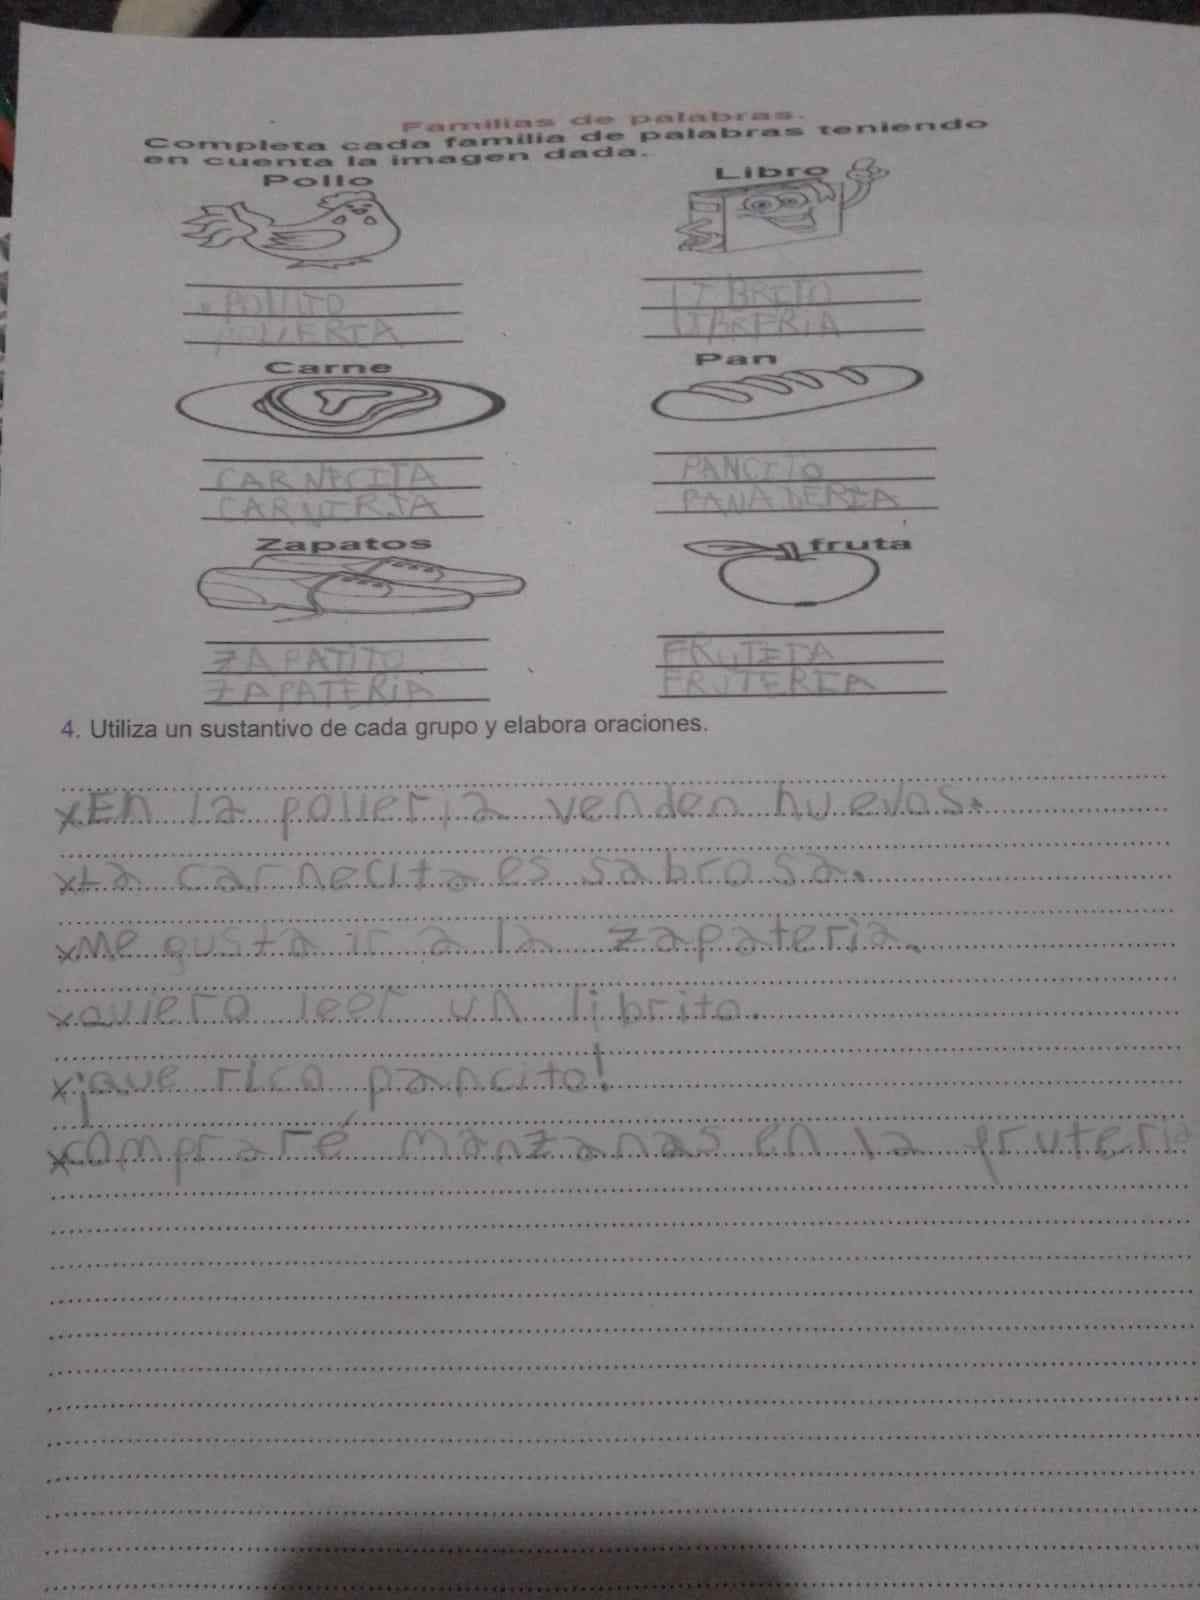 Familias de palabras.
Completa cada familia de palabras teniendo
en cuenta la imagen dada.
Pollo
Libro
POLLITO
LIBRITO
POLLERIA
LIBRERIA
Carne
Pan
CARNECITA
PANCITO
CARNERIA
PANADERIA
Zapatos
fruta
ZAPATITO
FRUTITA
ZAPATERIA
FRUTERIA
4. Utiliza un sustantivo de cada grupo y elabora oraciones.
x En la polleria venden huevos.
x La carnecita es sabrosa.
x Me gusta ir a la zapateria.
x quiero leer un librito.
x ¡que rico pancito!
x compraré manzanas en la fruteria